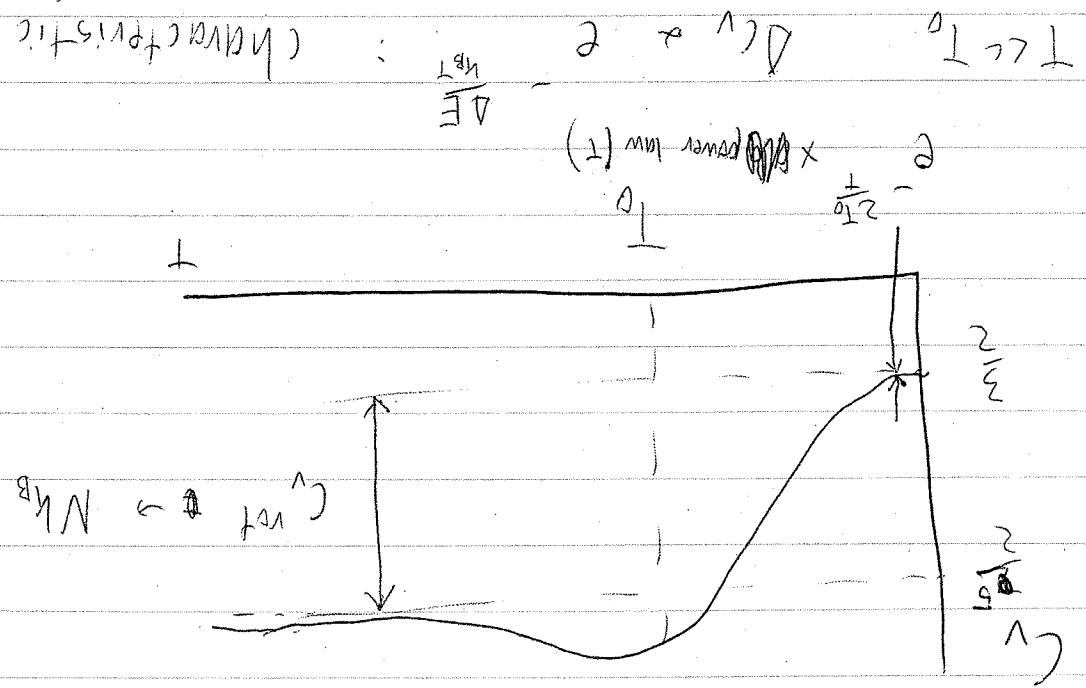 C_V
5/2
C_V rot → Nk_B
3/2
T_0
T
e^{-2T_0/T} × power law (T)
T << T_0 ΔC_V ∝ e^{-ΔE/k_BT} : characteristic